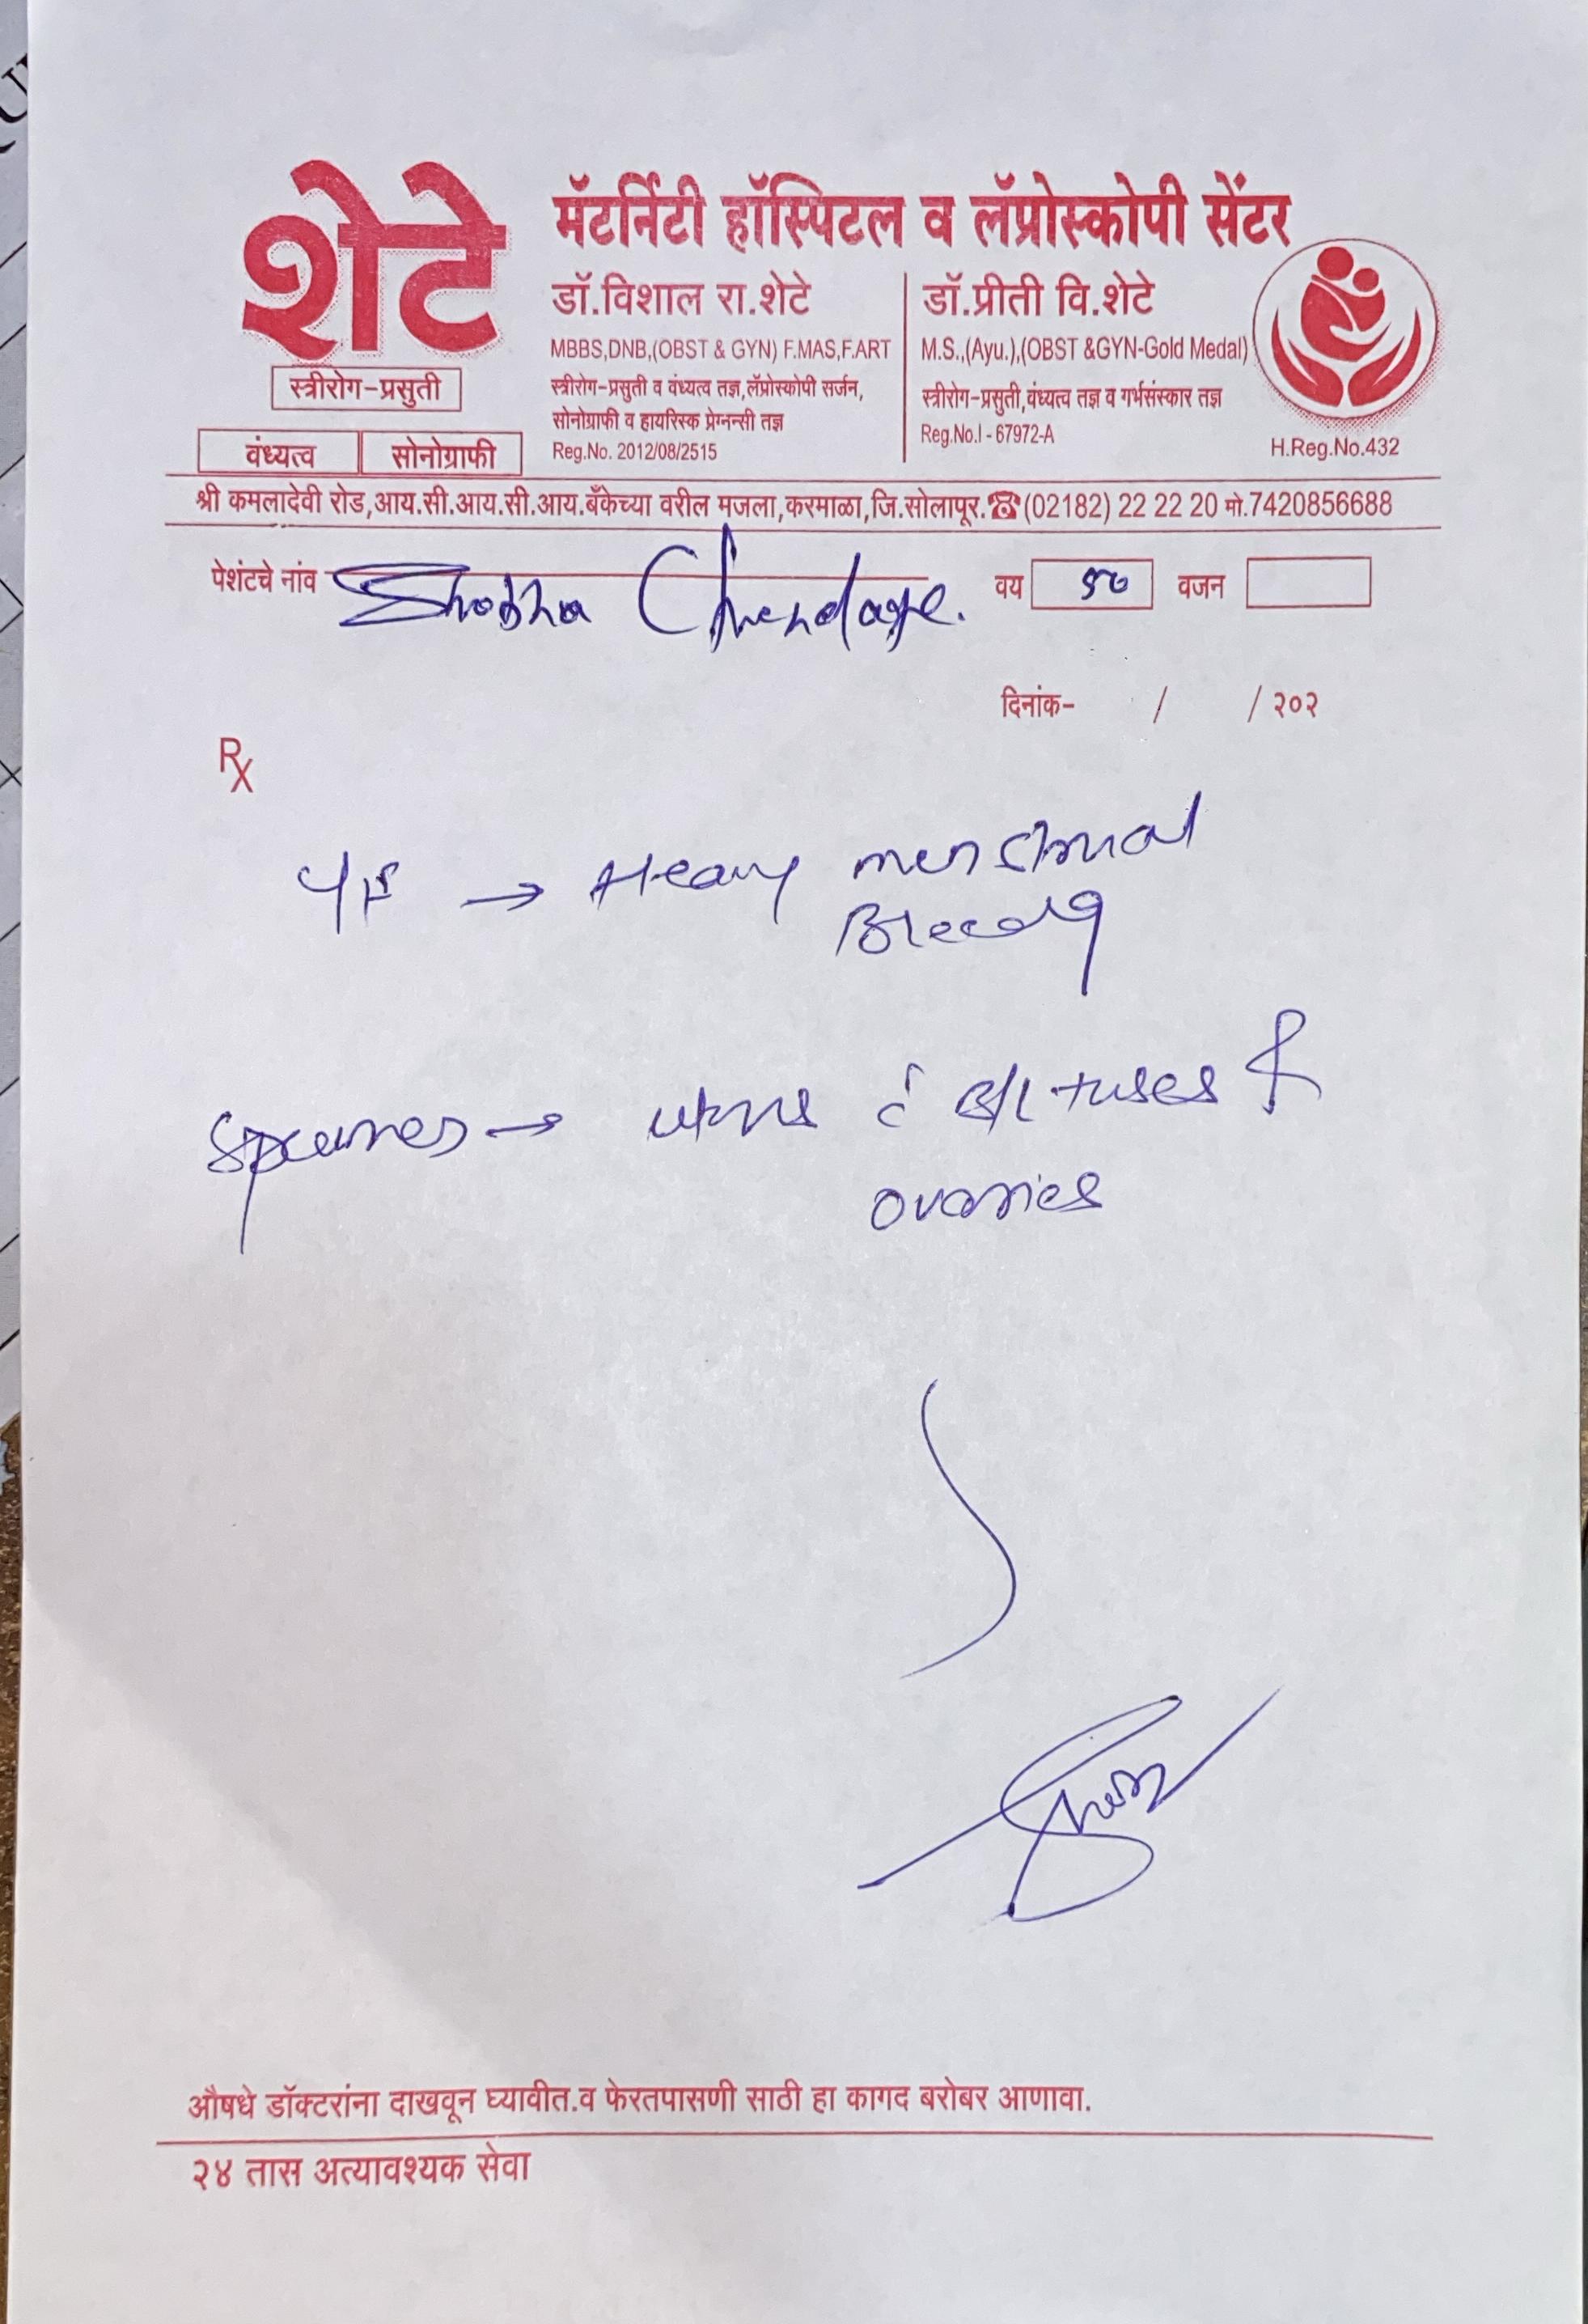 शेटे
मॅटर्निटी हॉस्पिटल व लॅप्रोस्कोपी सेंटर
डॉ.विशाल रा.शेटे
MBBS,DNB,(OBST & GYN) F.MAS,F.ART
स्त्रीरोग-प्रसुती व वंध्यत्व तज्ञ,लॅप्रोस्कोपी सर्जन,
सोनोग्राफी व हायरिस्क प्रेग्नन्सी तज्ञ
Reg.No. 2012/08/2515
डॉ.प्रीती वि.शेटे
M.S.,(Ayu.),(OBST &GYN-Gold Medal)
स्त्रीरोग-प्रसुती,वंध्यत्व तज्ञ व गर्भसंस्कार तज्ञ
Reg.No.I - 67972-A
H.Reg.No.432
स्त्रीरोग-प्रसुती
वंध्यत्व सोनोग्राफी
श्री कमलादेवी रोड,आय.सी.आय.सी.आय.बँकेच्या वरील मजला,करमाळा,जि.सोलापूर.☎(02182) 22 22 20 मो.7420856688
पेशंटचे नांव Shobha वय वजन
दिनांक- / / २०२
Rx
→ Heavy menstrual
Bleeding
Specimen → uterus c̄ B/L tubes &
ovaries
औषधे डॉक्टरांना दाखवून घ्यावीत.व फेरतपासणी साठी हा कागद बरोबर आणावा.
२४ तास अत्यावश्यक सेवा